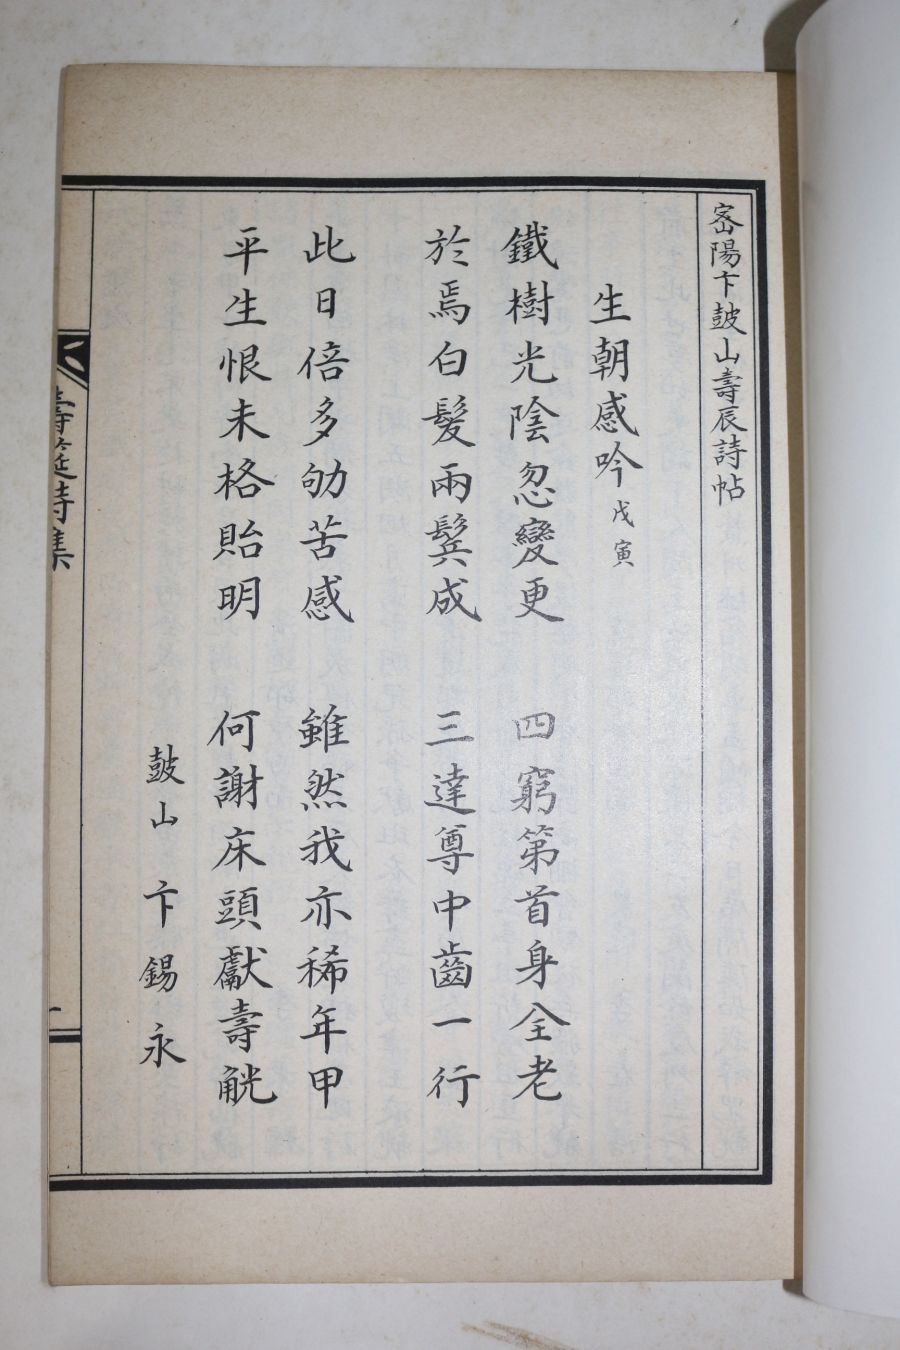 密陽卞皷山壽辰詩帖
生朝感吟 戊寅
鐵樹光陰忽變更 四窮第首身全老
於焉白髮兩鬢成 三達尊中齒一行
此日倍多劬苦感 雖然我亦稀年甲
平生恨未格貽明 何謝床頭獻壽觥
皷山 卞錫永
壽筵詩集
一